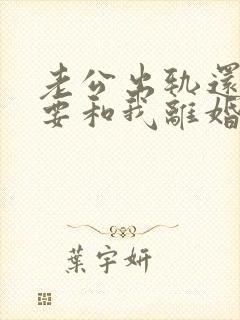 老公出軌還
要和我離婚
葉宇妍